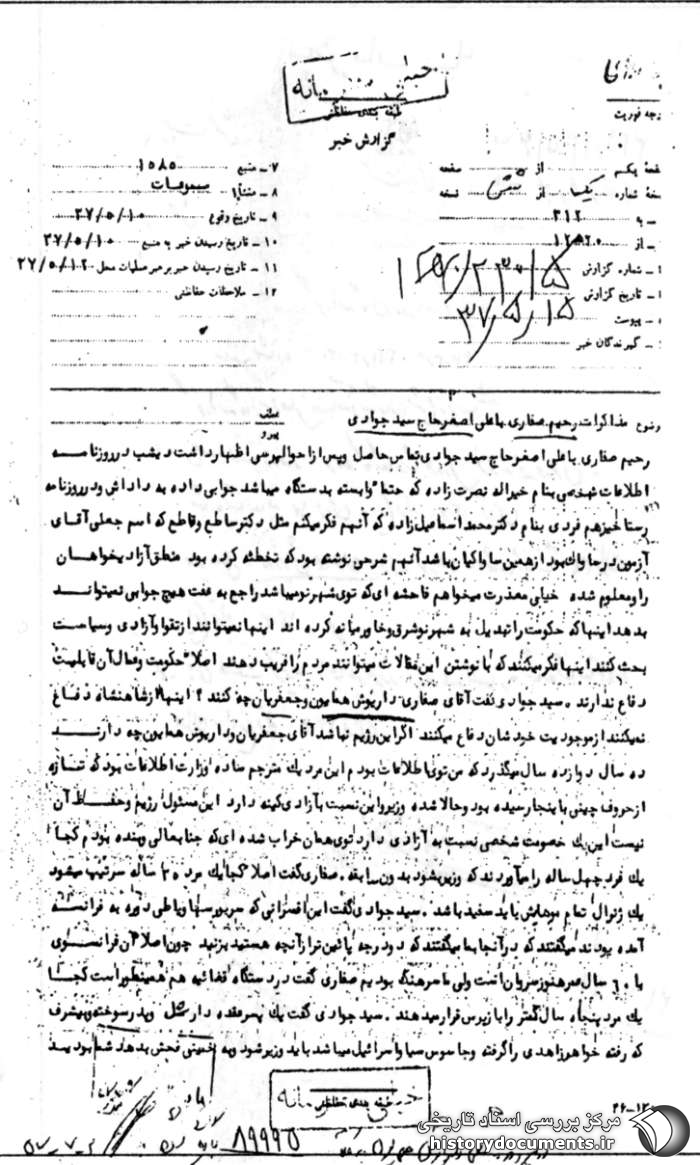 خیلی محرمانه
طبقه بندی حفاظتی
گزارش خبر
درجه فوریت
از صفحه
نسخه شماره یک از شش نسخه
به ۳۱۲
از
شماره گزارش
تاریخ گزارش ۳۷/۵/۱۵
پیوست
گیرندگان خبر
۷ ـ منبع ۱۵۸۵
۸ ـ منشأ مسموعات
۹ ـ تاریخ وقوع ۳۷/۵/۱۰
۱۰ ـ تاریخ رسیدن خبر به منبع ۳۷/۵/۱۰
۱۱ ـ تاریخ رسیدن خبر برهبر عملیات محل ۳۷/۵/۱۲
۱۲ ـ ملاحظات حفاظتی
موضوع مذاکرات رحیم صفاری با علی اصغر حاج سید جوادی
پیرو
رحیم صفاری با علی اصغر حاج سید جوادی تماس حاصل و پس از احوالپرسی اظهار داشت دیشب در روزنامه
اطلاعات شخصی بنام خیراله نصرت زاده که حتما" وابسته بدستگاه میباشد جوابی داده به داداش و در روزنامه
رستاخیز هم فردی بنام دکتر محمد اسماعیل زاده که آنهم فکر میکنم مثل دکتر ساطع و قاطع که اسم جعلی آقای
آزمون در ساواک بود از همین ساواکیان باشد آنهم شرحی نوشته بود که تخطئه کرده بود منطق آزادیخواهان
را و معلوم شده خیلی معذرت میخواهم فاحشه ای که توی شهر نو میباشد راجع به عفت هیچ جوابی نمیتواند
بدهد اینها که حکومت را تبدیل به شهر نو شرق و خاورمیانه کرده اند اینها نمیتوانند از تقوا و آزادی و سیاست
بحث کنند اینها فکر میکنند که با نوشتن این مقالات میتوانند مردم را فریب دهند اصلا" حکومت و فعال آن قابلیت
دفاع ندارند . سید جوادی گفت آقای صفاری داریوش همایون و جعفریان چه کنند ؟ اینها از شاهنشاه دفاع
نمیکنند از موجودیت خودشان دفاع میکنند اگر این رژیم نباشد آقای جعفریان و داریوش همایون چه دارند
ده سال دوازده سال میگذرد که من توی اطلاعات بودم این مرد یک مترجم ساده وزارت اطلاعات بود که تازه
از حروف چینی باینجا رسیده بود و حالا شده وزیر و این نسبت بآزادی کینه دارد این مسئول رژیم و حفاظ آن
نیست این یک خصومت شخصی نسبت به آزادی دارد توی همان خراب شده ای که جنابعالی و بنده بودم کجا
یک فرد چهل ساله را میآوردند که وزیر بشود بدون سابقه . صفاری گفت اصلا" کجا یک مرد ۴۰ ساله سرتیپ میشود
یک ژنرال تمام موهایش باید سفید باشد . سید جوادی گفت این افسرانی که سربورسها و یا طی دوره به فرانسه
آمده بودند میگفتند که در آنجا بما میگفتند که دو درجه پائین تر از آنچه هستید بزنید چون اصلا" آن فرانسوی
با ۶۰ سال عمر هنوز سروان است ولی ما سرهنگ بودیم صفاری گفت در دستگاه قضائیه هم همینطور است کجا
یک مرد پنجاه سال کمتر را بازپرس قرار میدهند . سید جوادی گفت یک پسر عقده دار مثل و پدرسوخته و بیشرف
که رفته خواهر زاهدی را گرفته و جاسوس سیا و اسرائیل میباشد باید وزیر شود و به خمینی فحش بدهد شما بودید
طبقه بندی حفاظتی
خیلی محرمانه
۸۹۹۹۵
مرکز بررسی اسناد تاریخی
historydocuments.ir